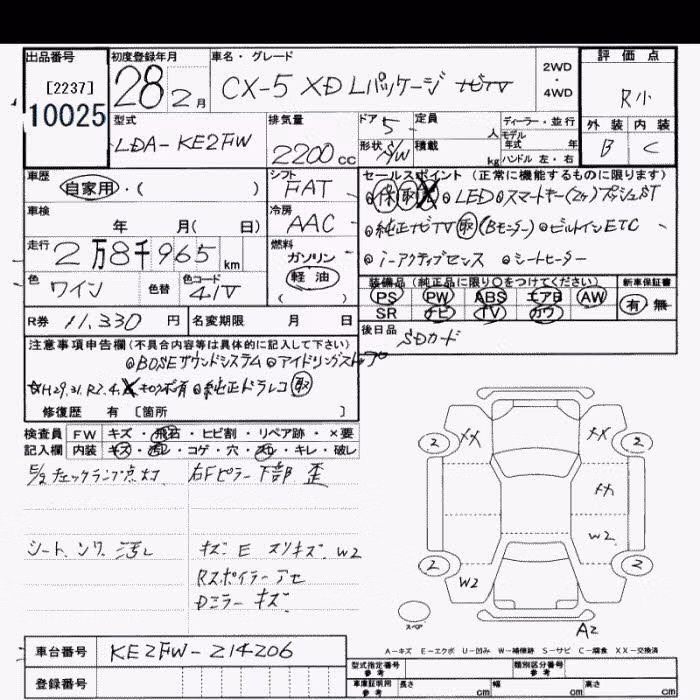 出品番号 初度登録年月 車名・グレード 評価点
[2237]
10025
28 2月 CX-5 XD Lパッケージ ナビTV
2WD ・ 4WD
R小
外装 内装
B C
型式 LDA-KE2FW
排気量 2200cc
ドア 5 定員 人
形状 S/W 積載 kg
ディーラー・並行
モデル年式 年
ハンドル 左・右
車歴 自家用・( )
シフト FAT
車検 年 月( 日)
冷房 AAC
走行 2万8千965km
燃料 ガソリン 軽油 ( )
色 ワイン 色替 色コード 41V
R券 11,330円 名変期限 月 日
セールスポイント(正常に機能するものに限ります)
LED スマートキー(2ヶ)プッシュST
純正ナビTV 取(Bモニター) ビルトインETC
i-アクティブセンス シートヒーター
装備品(純正品に限り○をつけてください) 新車保証書
PS PW ABS エアB AW 有 無
SR ナビ TV カワ
後日品 SDカード
注意事項申告欄(不具合内容等は具体的に記入して下さい)
BOSEサウンドシステム アイドリングストップ
☆H29.31.R2.4 キロク簿有 純正ドラレコ 取
修復歴 有 [箇所 ]
検査員記入欄
FW キズ・飛石・ヒビ割・リペア跡・×要
内装 キズ・汚レ・コゲ・穴・スレ・キレ・破レ
E/gチェックランプ点灯 右Fピラー下部 歪
シート、ンワ、汚レ キズ E スリキズ W2
Rスポイラーアセ
Dミラーキズ
2 XX XX 2
W2
2 W2 2
スペア
A2
A-キズ E-エクボ U-凹み W-補修跡 S-サビ C-腐食 XX-交換済
車台番号 KE2FW-214206
登録番号
型式指定番号 参考 類別区分番号 参考
車庫証明用 参考 長さ cm 幅 cm 高さ cm